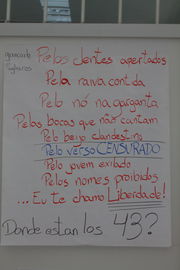 Pelos dentes apertados
Pela raiva contida
Pelo nó na garganta
Pelas bocas que não cantam
Pelo beijo clandestino
Pelo verso CENSURADO
Pelo jovem exilado
Pelos nomes proibidos
...Eu te chamo Liberdade!
Donde estan los 43?